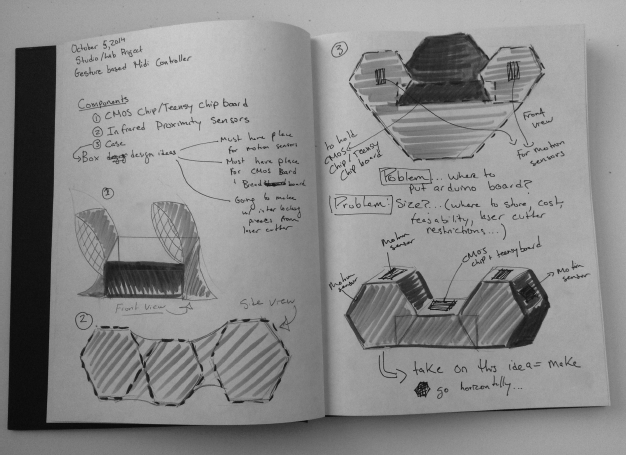 October 5, 2014
Studio/Lab Project
Gesture based Midi Controller
Components
① CMOS Chip/Teensy Chip board
② Infrared Proximity Sensors
③ Case
Box design ideas
Must have place
for motion sensors
Must have place
for CMOS Bard
& Bread board
Going to make
w/ inter locking
pieces from
laser cutter
①
Front View
②
Side view
③
to hold
CMOS
Chip/Teensy
Chip board
Front
view
For motion
sensors
Problem... where to
put arduino board?
Problem: Size?... (where to store, cost,
feasability, laser cutter
restrictions...)
Motion
sensor
Motion
sensor
CMOS
chip + teensyboard
Motion
sensor
take on this idea = make
go horizontally...